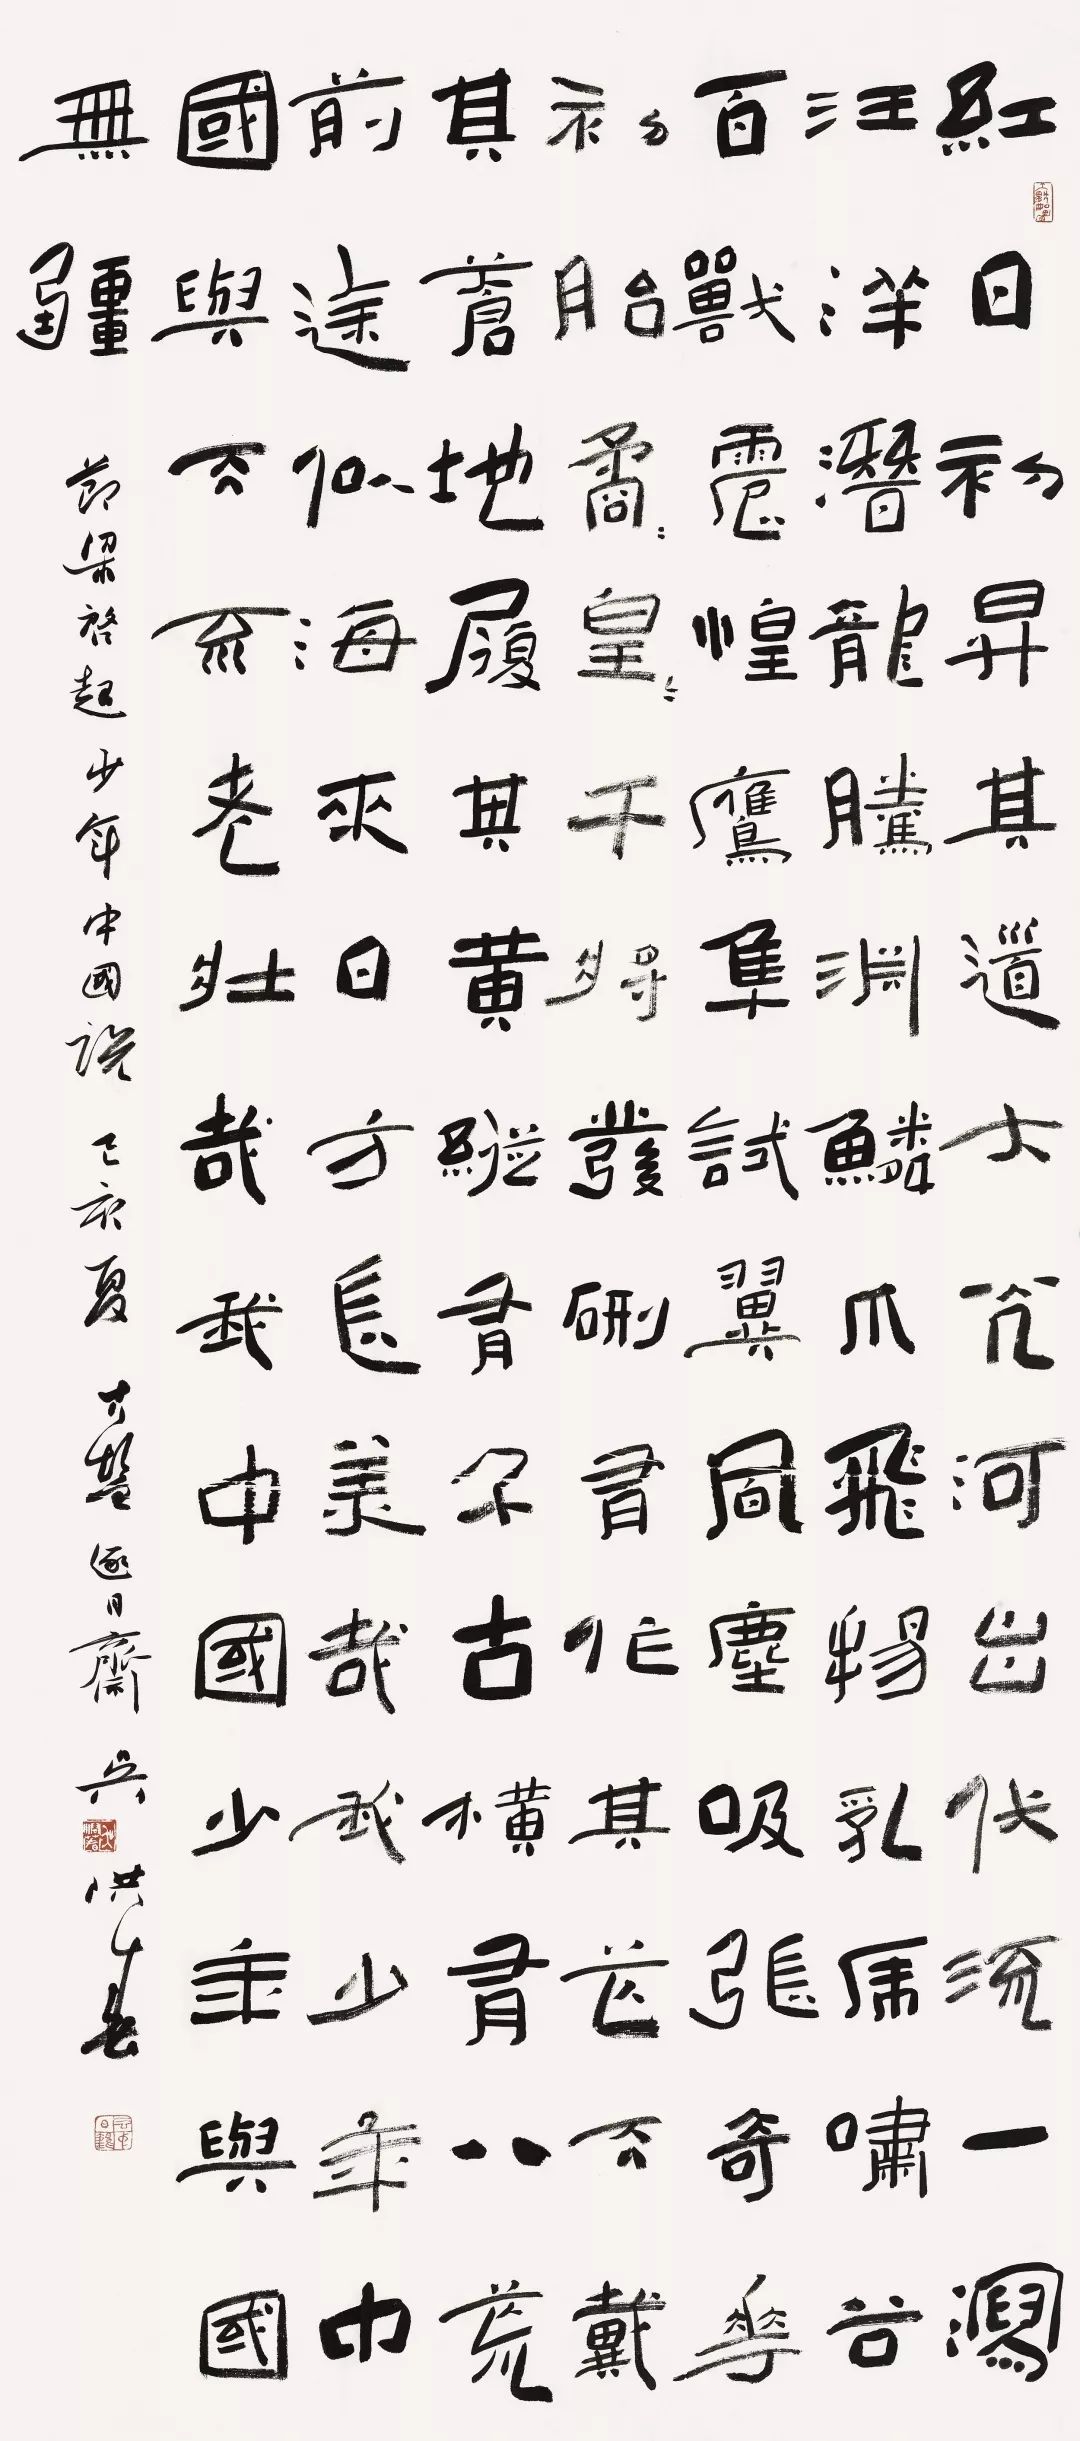 紅日初昇其道大光河出伏流一瀉
汪洋潛龍騰淵鱗爪飛揚乳虎嘯谷
百獸震惶鷹隼試翼風塵吸張奇華
初胎矞〻皇〻干將發硎有作其芒天戴
其蒼地履其黃縱有千古橫有八荒
前途似海來日方長美哉我少年中
國與天不老壯哉我中國少年與國
無疆
節梁啓超少年中國說 己亥夏 逐日齋 吳洪春